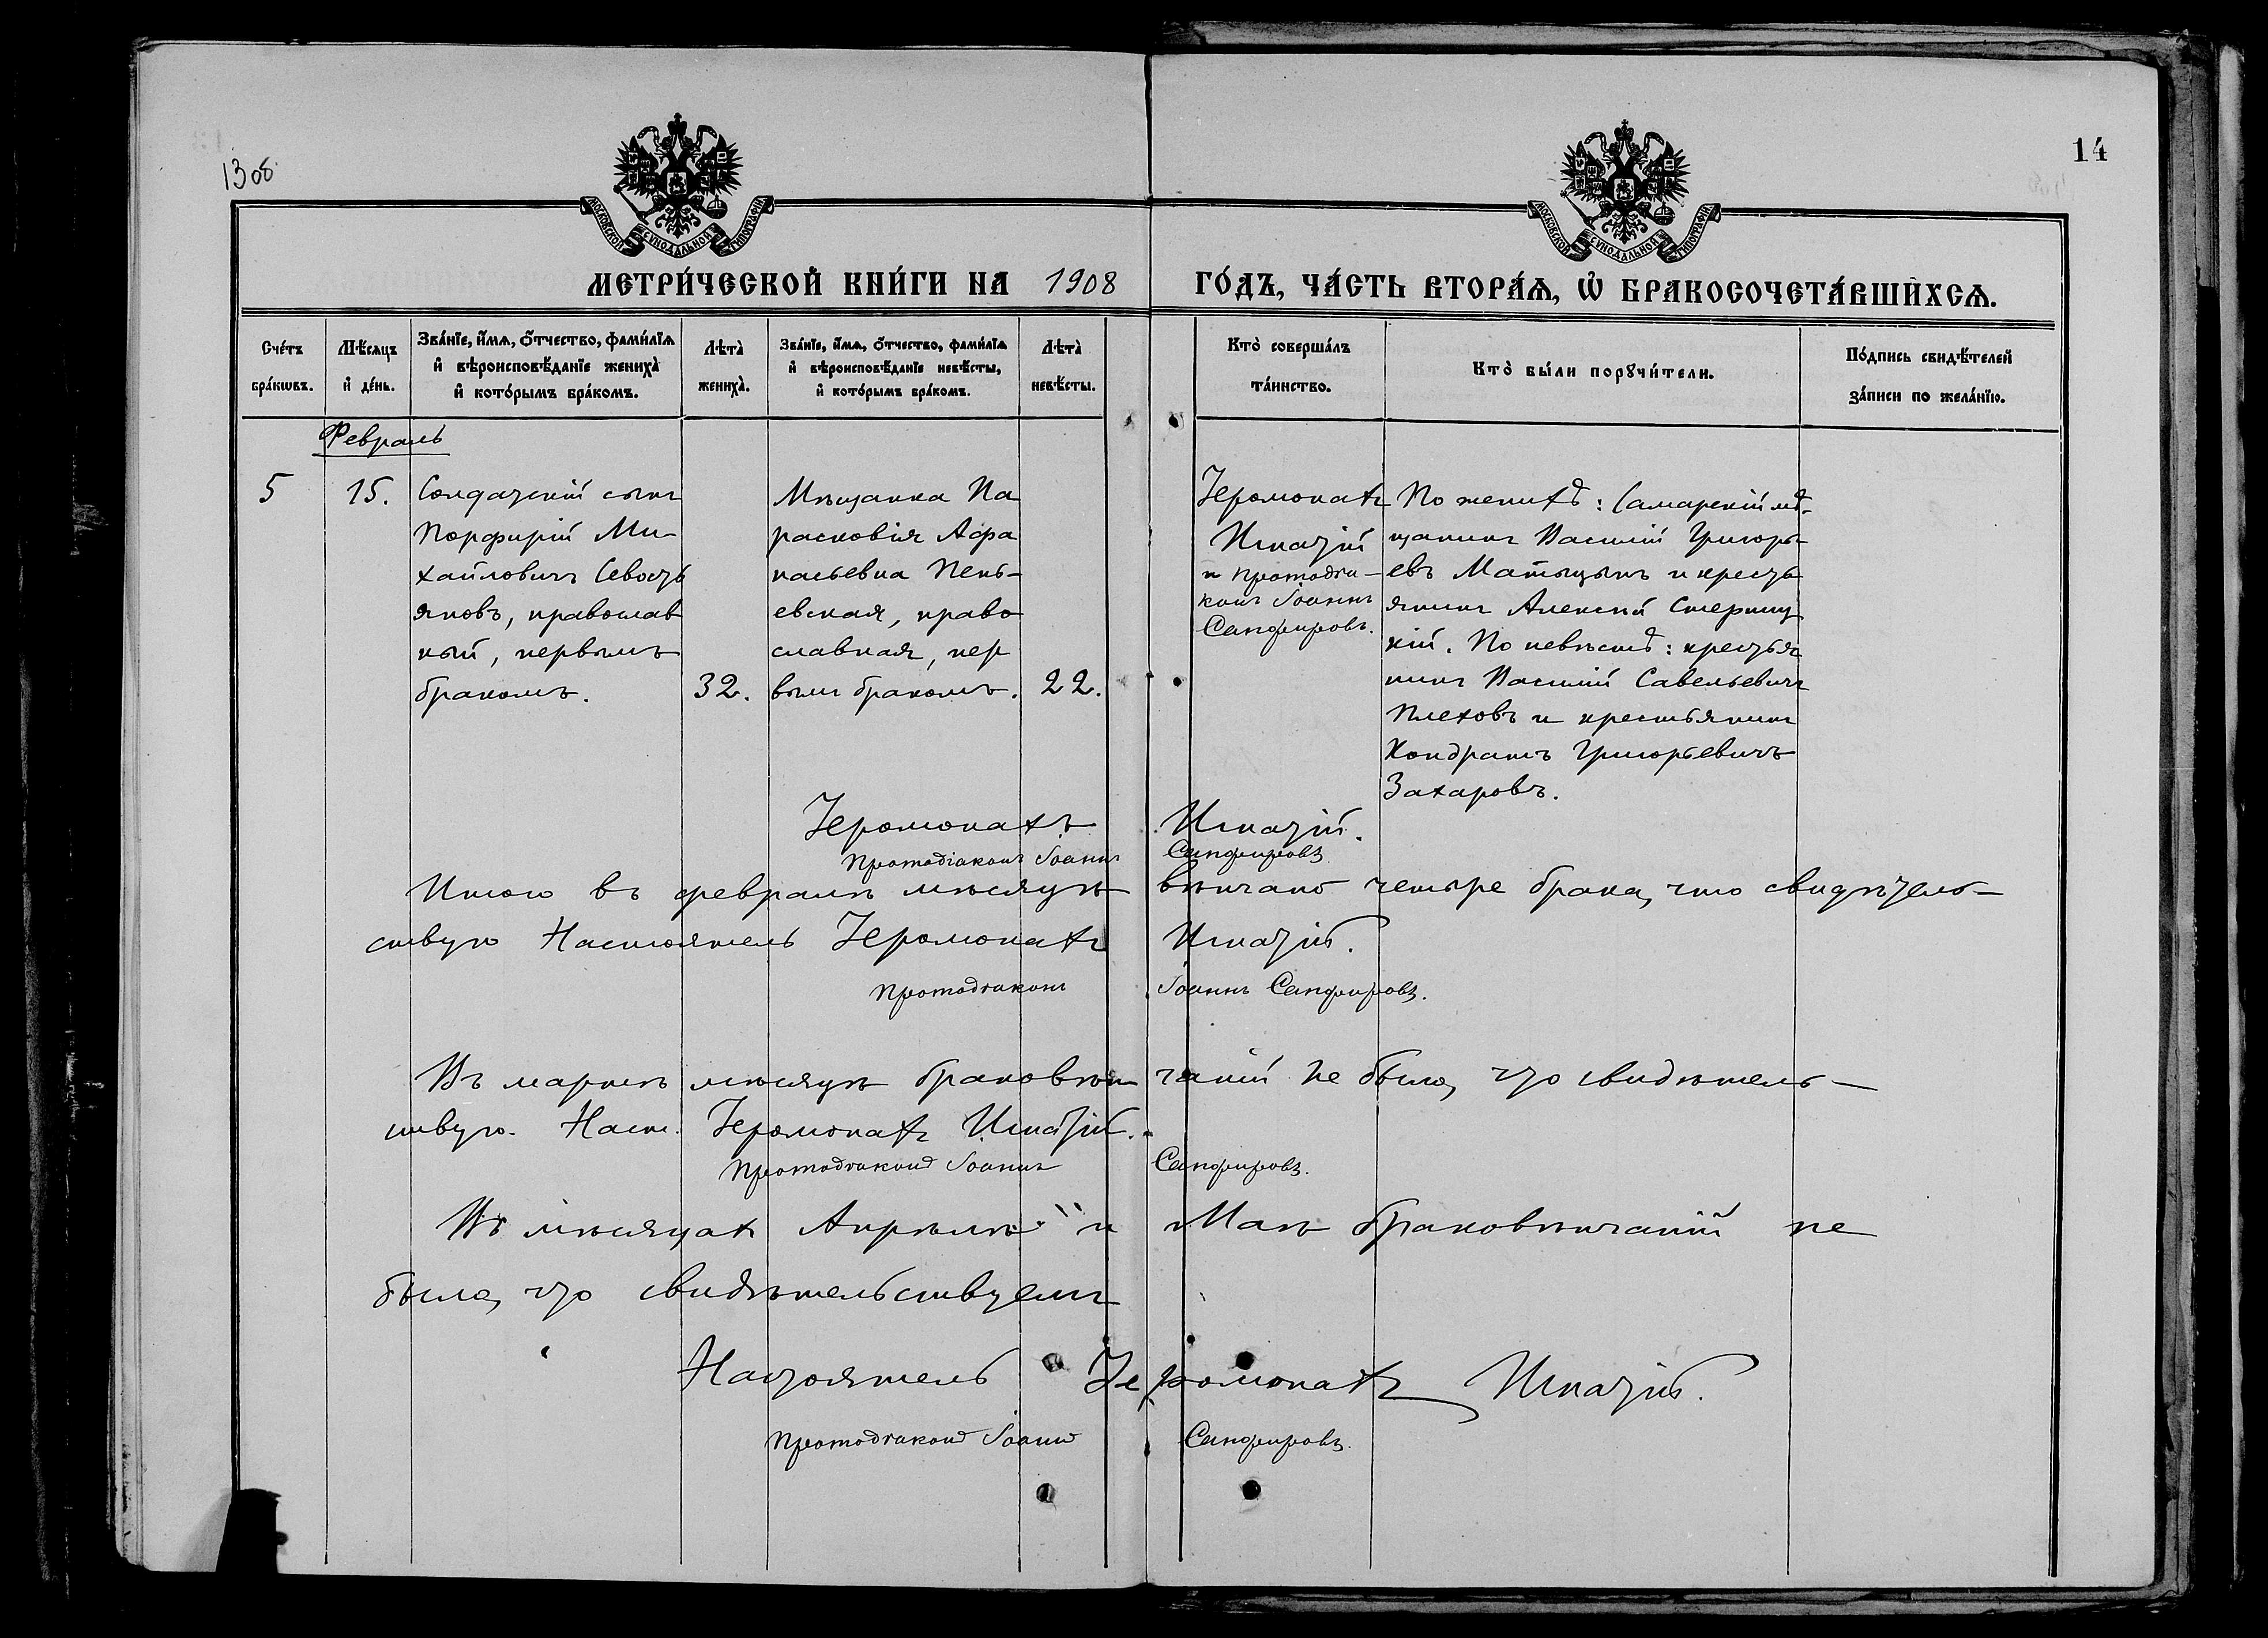 1308
14
МОСКОВСКОЙ СѴНОДАЛЬНОЙ ТИПОГРАФІИ
МОСКОВСКОЙ СѴНОДАЛЬНОЙ ТИПОГРАФІИ
МЕТРИ́ЧЕСКОЙ КНИ́ГИ НА 1908 ГО́ДЪ, ЧА́СТЬ ВТОРА́Ѧ, Ѡ҆ БРАКОСОЧЕТА́ВШИХСѦ.
Сче́тъ
бра́кѡвъ.
Мѣ́сяцъ
и҆ де́нь.
Зва́нїе, и҆́мѧ, ѻ҆́тчество, фами́лїѧ
и҆ вѣроисповѣ́данїе жениха̀
и҆ кото́рымъ бра́комъ.
Лѣта̀
жениха̀.
Зва́нїе, и҆́мѧ, ѻ҆́тчество, фами́лїѧ
и҆ вѣроисповѣ́данїе невѣ́сты,
и҆ кото́рымъ бра́комъ.
Лѣта̀
невѣ́сты.
Кто̀ соверша́лъ
та́инство.
Кто̀ бы́ли порꙋчи́тели.
По́дпись свидѣ́телей
за́писи по жела́нїю.
Февраль
5
15.
Солдатскій сынъ
Порфирій Ми-
хайловичъ Севость
яновъ, православ
ный, первымъ
бракомъ.
32.
Мѣщанка Па
расковія Афа
насьевна Пень-
евская, право
славная, пер
вымъ бракомъ.
22.
Іеромонахъ
Игнатій
и протодіа-
конъ Іоаннъ
Сапфировъ.
По женихѣ: Самарскій мѣ-
щанинъ Василій Григорь
евъ Матыцынъ и кресть
янинъ Алексѣй
кій. По невѣстѣ: крестья
нинъ Василій Савельевичъ
Плеховъ и крестьянинъ
Кондратъ Григорьевичъ
Захаровъ.
Іеромонахъ Игнатій.
Протодіаконъ Іоаннъ Сапфировъ
Итого въ февралѣ мѣсяцѣ вѣнчано четыре брака, что свидѣтель-
ствую Настоятель Іеромонахъ Игнатій.
Протодіаконъ Іоаннъ Сапфировъ.
Въ мартѣ мѣсяцѣ браковѣн чаній не было, что свидѣтель-
ствую. Наст. Іеромонахъ Игнатій.
Протодіаконъ Іоаннъ Сапфировъ.
Въ мѣсяцахъ Апрѣлѣ и Маѣ браковѣнчаній не
было, что свидѣтельствуемъ
Настоятель Іеромонахъ Игнатій.
Протодіаконъ Іоаннъ Сапфировъ.